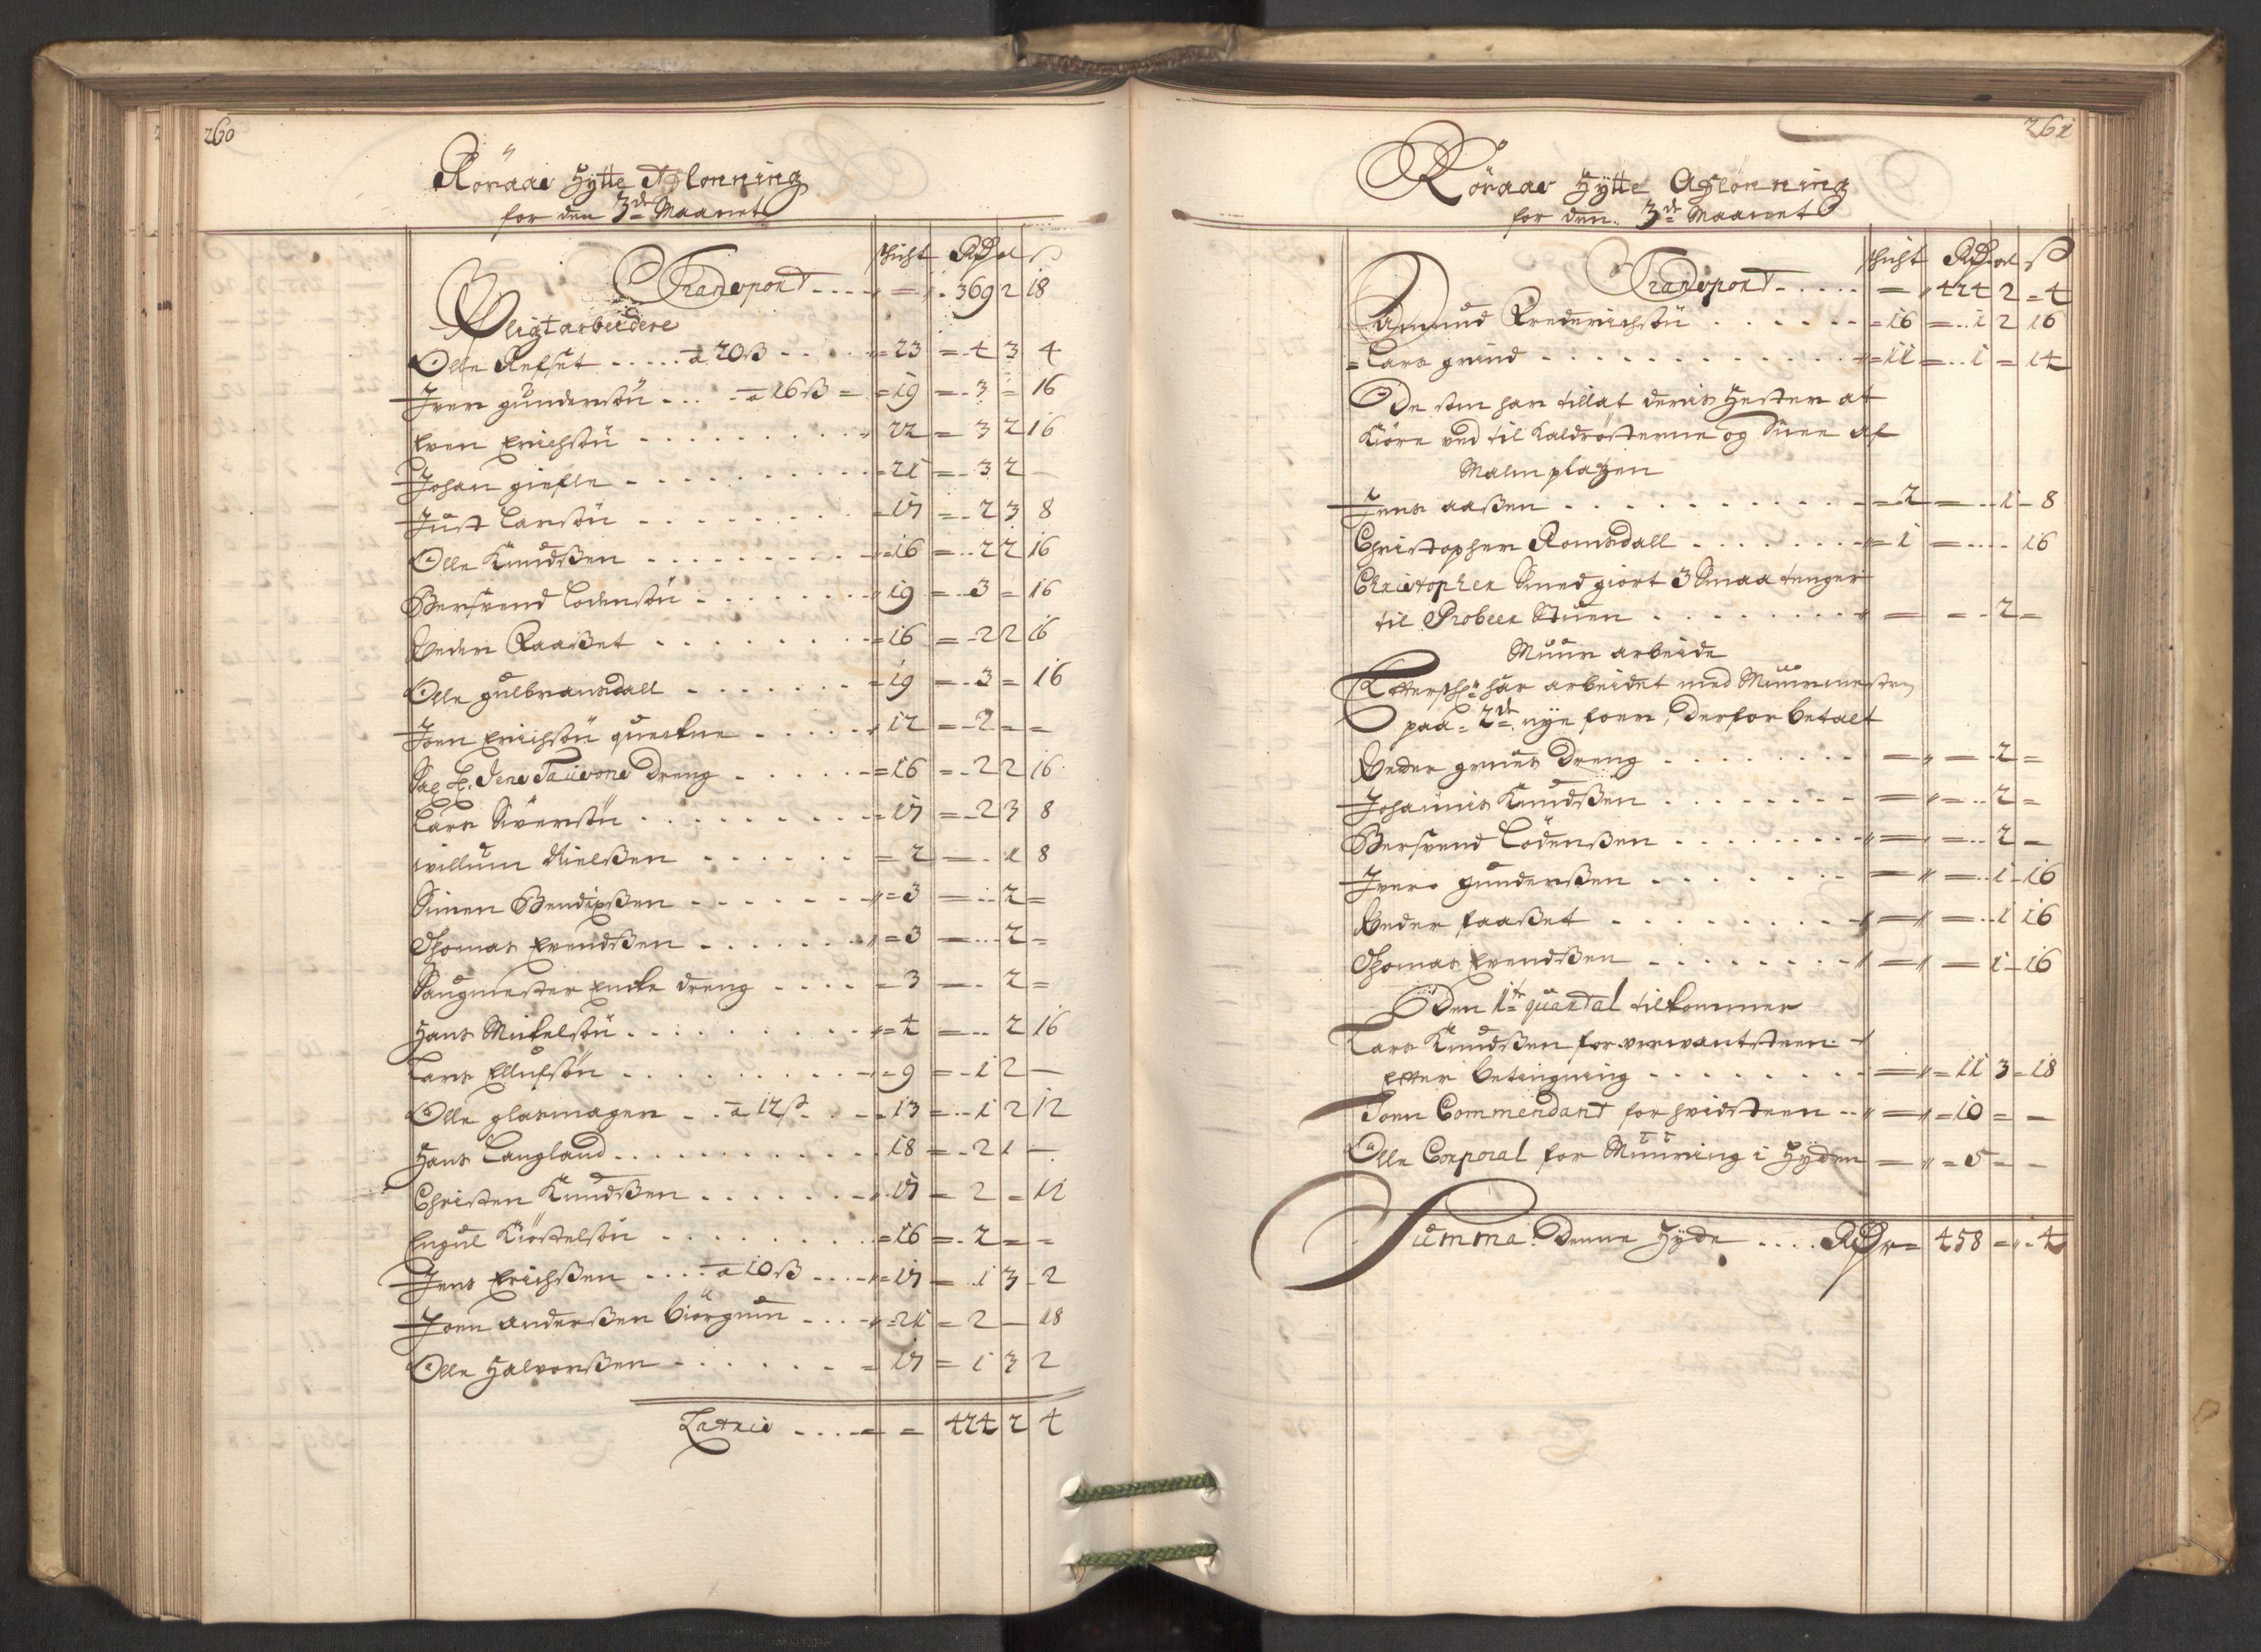 260
Röraas Hytte Aflonning
for den 3de Maanet
schicht Rdr ort ß
Transport . . . . = 369 2 18
Pligtarbeidere
Olle Refset . . . . . a 20 ß . . . . = 23 = 4 3 4
Iver gundersøn . . . a 16 ß = = 19 = 3 = 16
Even Erichsøn . . . . 22 = 3 2 16
Johan giefle . . . . = 21 = 3 2 —
Just Larsøn . . . . = 17 = 2 3 8
Olle Knudßen . . . . = 16 = 2 2 16
Bersvend Lodensøn . . . . 19 = 3 = 16
Peder Faaßet . . . . = 16 = 2 2 16
Olle gulbransdall . . . . = 19 = 3 = 16
Joen Erichsøn quekne . . . . 12 = 2 = =
Jens Taùsons dreng . . . . = 16 = 2 2 16
Lars Siversøn . . . . = 17 = 2 3 8
willum Nielßen . . . . = 2 = 1 8
Simen Bendixßen . . . . = 3 = 2 =
Thomas Evendßen . . . . = 3 = 2 =
Saugmester Encke dreng . . . . = 3 = 2 =
Hans Mikelsøn . . . . = 4 = 2 16
Lars Ellufsøn . . . . = 9 = 1 2 —
Olle glasmager . . a 12 ß . . = 13 = 1 2 12
Hans Langland . . . . 18 = 2 1 —
Christen Knudßen . . . . 17 = 2 = 12
Engul Kiöstelsøn . . . . = 16 = 2 = =
Jens Erichßen . . . . a 10 ß . . . . = 17 = 1 3 2
Joen anderßen Biörgum . . . . = 21 = 2 — 18
Olle Halvorßen . . . . = 17 = 1 3 2
Latris . . . . = = 424 2 4
261
Röraas Hytte Aflönning
for den 3de Maanet
schicht Rdr ort ß
Transport . . . . = 424 2 = 4
Amund Frederichsøn . . . . = 16 = 1 2 16
Lars grind . . . . = 11 = 1 = 14
De som har tillat deris Hester at
Kiöre ved til Kaldrösterne og Snee af
Malm platzen
Jens aaßen . . . . = 2 = 1 = 8
Christopher Romsdall . . . . = 1 = 16
Christopher Smed giort 3 Smaa tenger
til Probeer Stuen . . . . = = 2 =
Muur arbeide
Effterschr: har arbeidet med Muurmester
paa 2de nye foer, derfor betalt
Peder gruès Dreng . . . . = = 2 =
Johannis Knudßen . . . . = = 2 =
Bersvend Lödenßen . . . . = = 2 =
Iver gunderßen . . . . = = 1 = 16
Peder faaßet . . . . = = 1 16
Thomas Evendßen . . . . = = 1 = 16
Den 1te quartal tilkommer
Lars Knudßen for verwantsteen
Efter betingning . . . . = = 11 3 = 18
Joen Commendant for hvidsteen . . = = 10 = =
Olle Corporal for Muuring i Hyden = = 5 = =
Summa Denne Hyde . . . . Rdr = 458 = = 4